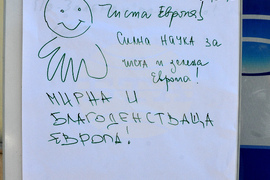 Чиста Европа!
Силна наука за
чиста и успешна
Европа!
МИРНА И
БЛАГОДЕНСТВАЩА
ЕВРОПА!